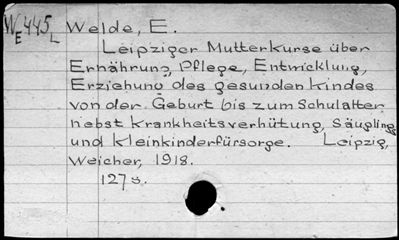 WE 445L Welde, E.
Leipziger Mutterkurse über
Ernährung, Pflege, Entwicklung,
Erziehung des gesunden Kindes
von der Geburt bis zum Schulalter
nebst Krankheitsverhütung, Säugling
und Kleinkinderfürsorge. Leipzig,
Weicher, 1918.
127 s.